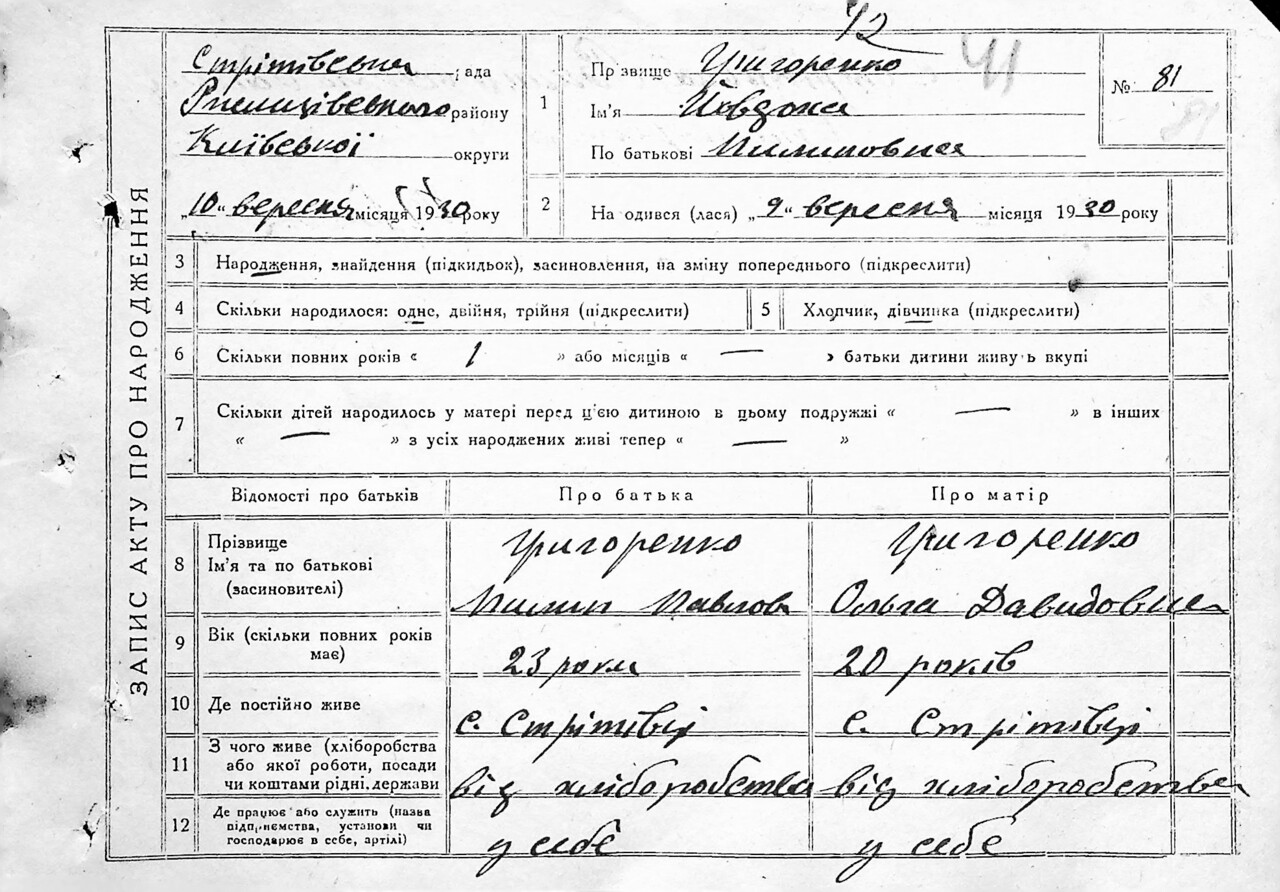 42
41
Стрітівська рада
Ржищівського району
Київської округи
„10“ вересня місяця 1930 року
1
Прізвище Григоренко
Ім'я Йовдоха
По батькові Пилиповна
№ 81
81
2
На одився (лася) „9“ вересня місяця 1930 року
ЗАПИС АКТУ ПРО НАРОДЖЕННЯ
3 Народження, знайдення (підкидьок), засиновлення, на зміну попереднього (підкреслити)
4 Скільки народилося: одне, двійня, трійня (підкреслити)
5 Хлопчик, дівчинка (підкреслити)
6 Скільки повних років « 1 » або місяців « — » батьки дитини живуть вкупі
7 Скільки дітей народилось у матері перед ц'єю дитиною в цьому подружжі « — » в інших
« — » з усіх народжених живі тепер « — »
Відомості про батьків
Про батька
Про матір
8 Прізвище
Ім'я та по батькові
(засиновителі)
Григоренко
Пилип Павлов
Григоренко
Ольга Давидовна
9 Вік (скільки повних років
має)
23 роки
20 років
10 Де постійно живе
с. Стрітівці
с. Стрітовці
11 З чого живе (хліборобства
або якої роботи, посади
чи коштами рідні, держави
від хліборобства
від хліборобства
12 Де працює або служить (назва
підприємства, установи чи
господарює в себе, артілі)
у себе
у себе